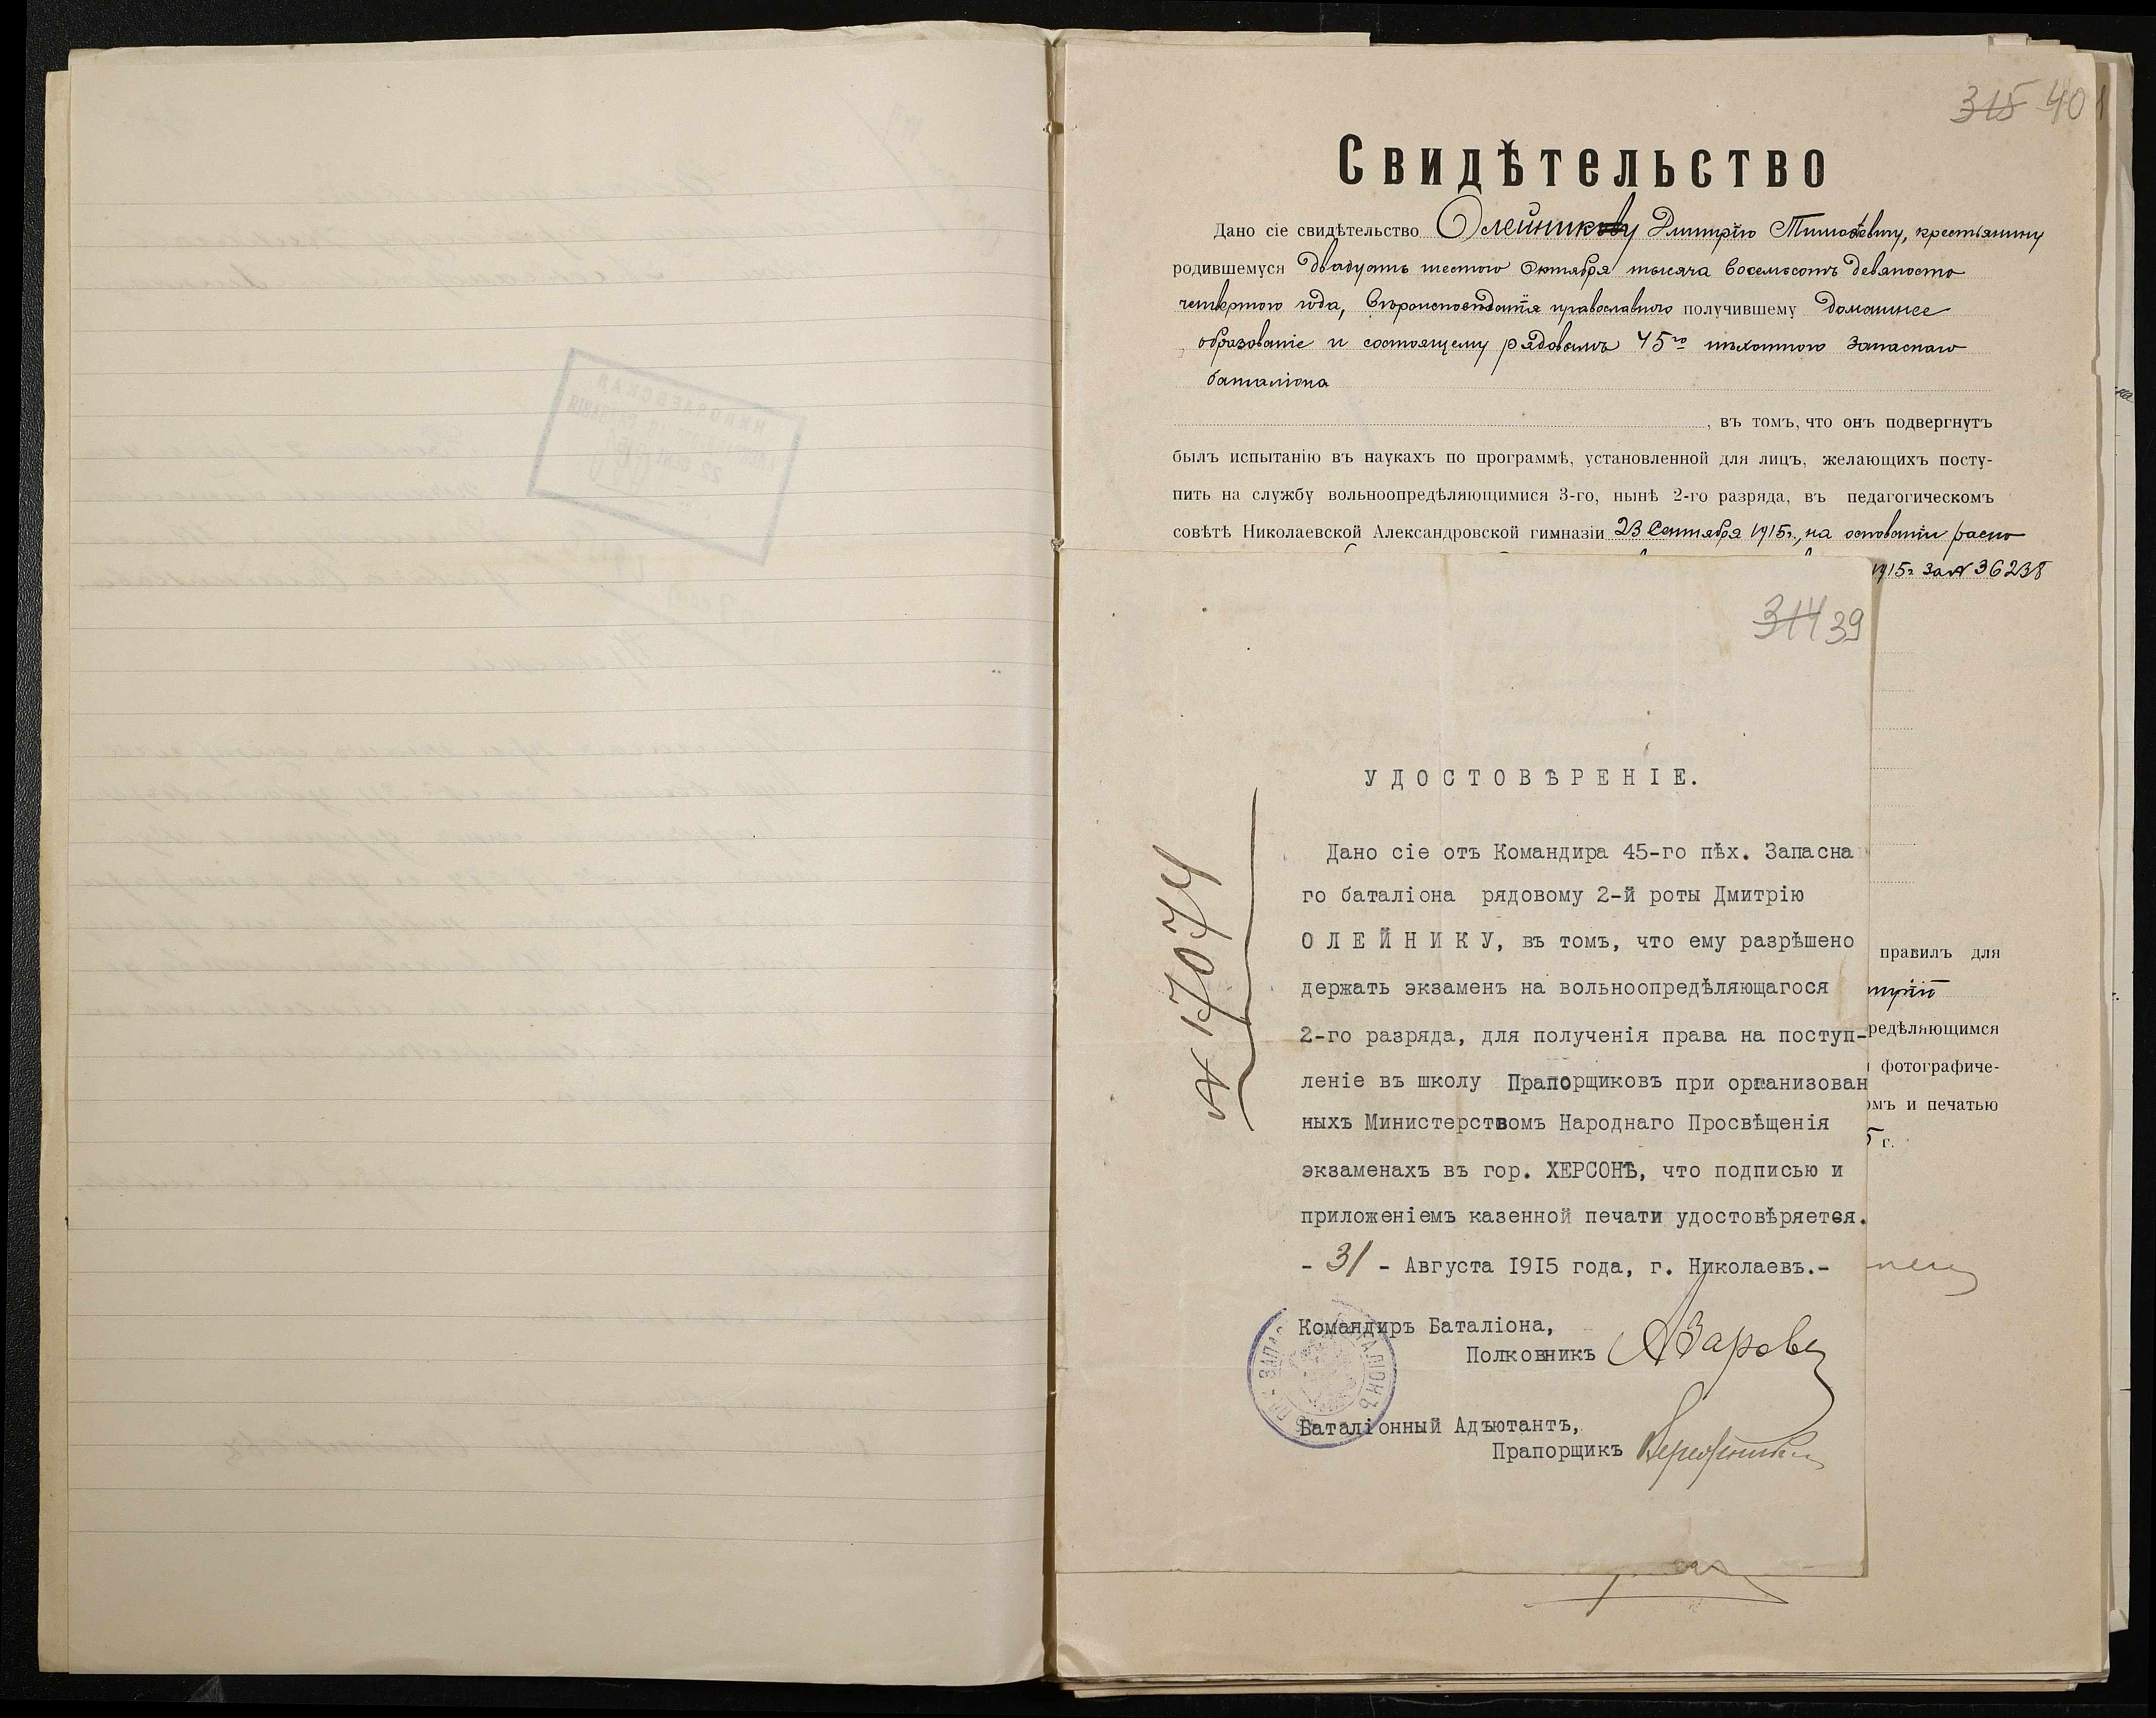 315 40
Свидѣтельство
Дано сіе свидѣтельство Олейнику Дмитрію Тимоѳеевичу, крестьянину
родившемуся двадцать шестого Октября тысяча восемьсотъ девяносто
четвертого года, вѣроисповѣданія православнаго получившему домашнее
образованіе и состоящему рядовымъ 45го пѣхотного запаснаго
баталіона
, въ томъ, что онъ подвергнутъ
былъ испытанію въ наукахъ по программѣ, установленной для лицъ, желающихъ посту-
пить на службу вольноопредѣляющимися 3-го, нынѣ 2-го разряда, въ педагогическомъ
совѣтѣ Николаевской Александровской гимназіи 23 Сентября 1915г., на основаніи распо
1915г за № 36238
314 39
УДОСТОВѢРЕНІЕ.
Дано сіе отъ Командира 45-го пѣх. Запасна
го баталіона рядовому 2-й роты Дмитрію
ОЛЕЙНИКУ, въ томъ, что ему разрѣшено
держать экзаменъ на вольноопредѣляющагося
2-го разряда, для полученія права на поступ-
леніе въ школу Прапорщиковъ при организован
ныхъ Министерствомъ Народнаго Просвѣщенія
экзаменахъ въ гор. ХЕРСОНѢ, что подписью и
приложеніемъ казенной печати удостовѣряется.
- 31 - Августа 1915 года, г. Николаевъ.-
Командиръ Баталіона,
Полковникъ Азаровъ
Баталіонный Адъютантъ,
Прапорщикъ
№ 17074
правилъ для
редѣляющимся
фотографиче-
омъ и печатью
5 г.